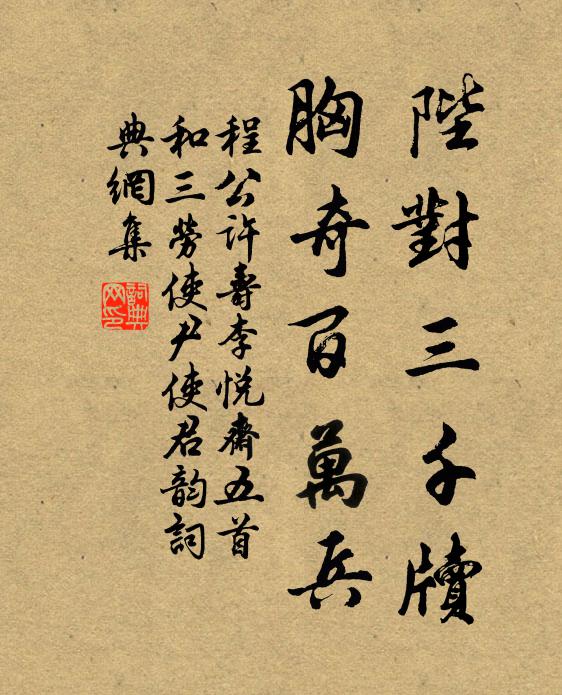 陛對三千牘
胸奇百萬兵
程公許壽李悅齋五首
和三勞使尹使君韵詞
典網集
詞典网印